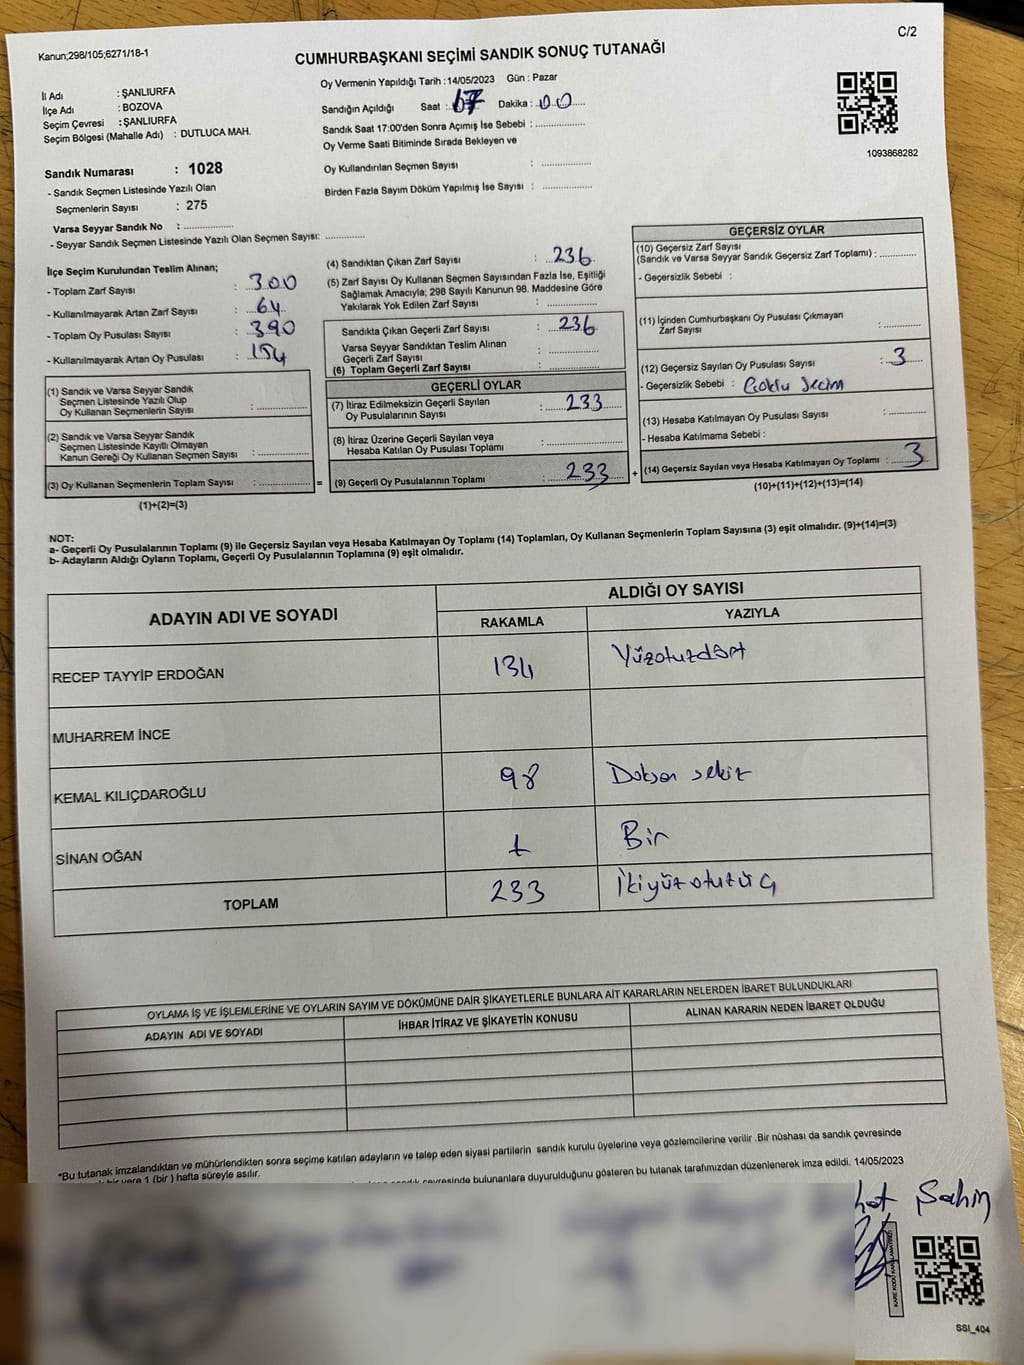 Kanun;298/105;6271/18-1
C/2
CUMHURBAŞKANI SEÇİMİ SANDIK SONUÇ TUTANAĞI
İl Adı : ŞANLIURFA
İlçe Adı : BOZOVA
Seçim Çevresi : ŞANLIURFA
Seçim Bölgesi (Mahalle Adı) : DUTLUCA MAH.
Sandık Numarası : 1028
- Sandık Seçmen Listesinde Yazılı Olan
Seçmenlerin Sayısı : 275
Varsa Seyyar Sandık No : ................
- Seyyar Sandık Seçmen Listesinde Yazılı Olan Seçmen Sayısı: ............
Oy Vermenin Yapıldığı Tarih : 14/05/2023 Gün : Pazar
Sandığın Açıldığı Saat : 17 Dakika : 00
Sandık Saat 17:00'den Sonra Açımış İse Sebebi : ................
Oy Verme Saati Bitiminde Sırada Bekleyen ve
Oy Kullandırılan Seçmen Sayısı : ................
Birden Fazla Sayım Döküm Yapılmış İse Sayısı : ................
1093868282
İlçe Seçim Kurulundan Teslim Alınan;
- Toplam Zarf Sayısı : 300
- Kullanılmayarak Artan Zarf Sayısı : 64
- Toplam Oy Pusulası Sayısı : 390
- Kullanılmayarak Artan Oy Pusulası : 154
(1) Sandık ve Varsa Seyyar Sandık
Seçmen Listesinde Yazılı Olup
Oy Kullanan Seçmenlerin Sayısı : ................
(2) Sandık ve Varsa Seyyar Sandık
Seçmen Listesinde Kayıtlı Olmayan
Kanun Gereği Oy Kullanan Seçmen Sayısı : ................
(3) Oy Kullanan Seçmenlerin Toplam Sayısı : ................ =
(1)+(2)=(3)
(4) Sandıktan Çıkan Zarf Sayısı : 236
(5) Zarf Sayısı Oy Kullanan Seçmen Sayısından Fazla İse, Eşitliği
Sağlamak Amacıyla; 298 Sayılı Kanunun 98. Maddesine Göre
Yakılarak Yok Edilen Zarf Sayısı : ................
Sandıkta Çıkan Geçerli Zarf Sayısı : 236
Varsa Seyyar Sandıktan Teslim Alınan
Geçerli Zarf Sayısı : ................
(6) Toplam Geçerli Zarf Sayısı : ................
GEÇERLİ OYLAR
(7) İtiraz Edilmeksizin Geçerli Sayılan
Oy Pusulalarının Sayısı : 233
(8) İtiraz Üzerine Geçerli Sayılan veya
Hesaba Katılan Oy Pusulası Toplamı : ................
(9) Geçerli Oy Pusulalarının Toplamı : 233 +
GEÇERSİZ OYLAR
(10) Geçersiz Zarf Sayısı
(Sandık ve Varsa Seyyar Sandık Geçersiz Zarf Toplamı) : ............
- Geçersizlik Sebebi :
(11) İçinden Cumhurbaşkanı Oy Pusulası Çıkmayan
Zarf Sayısı : ............
(12) Geçersiz Sayılan Oy Pusulası Sayısı : 3
- Geçersizlik Sebebi : Çoklu Seçim
(13) Hesaba Katılmayan Oy Pusulası Sayısı : ............
- Hesaba Katılmama Sebebi :
(14) Geçersiz Sayılan veya Hesaba Katılmayan Oy Toplamı : 3
(10)+(11)+(12)+(13)=(14)
NOT:
a- Geçerli Oy Pusulalarının Toplamı (9) ile Geçersiz Sayılan veya Hesaba Katılmayan Oy Toplamı (14) Toplamları, Oy Kullanan Seçmenlerin Toplam Sayısına (3) eşit olmalıdır. (9)+(14)=(3)
b- Adayların Aldığı Oyların Toplamı, Geçerli Oy Pusulalarının Toplamına (9) eşit olmalıdır.
ADAYIN ADI VE SOYADI
ALDIĞI OY SAYISI
RAKAMLA YAZIYLA
RECEP TAYYİP ERDOĞAN 134 Yüzotuzdört
MUHARREM İNCE
KEMAL KILIÇDAROĞLU 98 Doksan sekiz
SİNAN OĞAN 1 Bir
TOPLAM 233 İkiyüzotuzüç
OYLAMA İŞ VE İŞLEMLERİNE VE OYLARIN SAYIM VE DÖKÜMÜNE DAİR ŞİKAYETLERLE BUNLARA AİT KARARLARIN NELERDEN İBARET BULUNDUKLARI
ADAYIN ADI VE SOYADI İHBAR İTİRAZ VE ŞİKAYETİN KONUSU ALINAN KARARIN NEDEN İBARET OLDUĞU
*Bu tutanak imzalandıktan ve mühürlendikten sonra seçime katılan adayların ve talep eden siyasi partilerin sandık kurulu üyelerine veya gözlemcilerine verilir .Bir nüshası da sandık çevresinde
bir yere 1 (bir ) hafta süreyle asılır.
sandık çevresinde bulunanlara duyurulduğunu gösteren bu tutanak tarafımızdan düzenlenerek imza edildi. 14/05/2023
Şahin
SSI_404